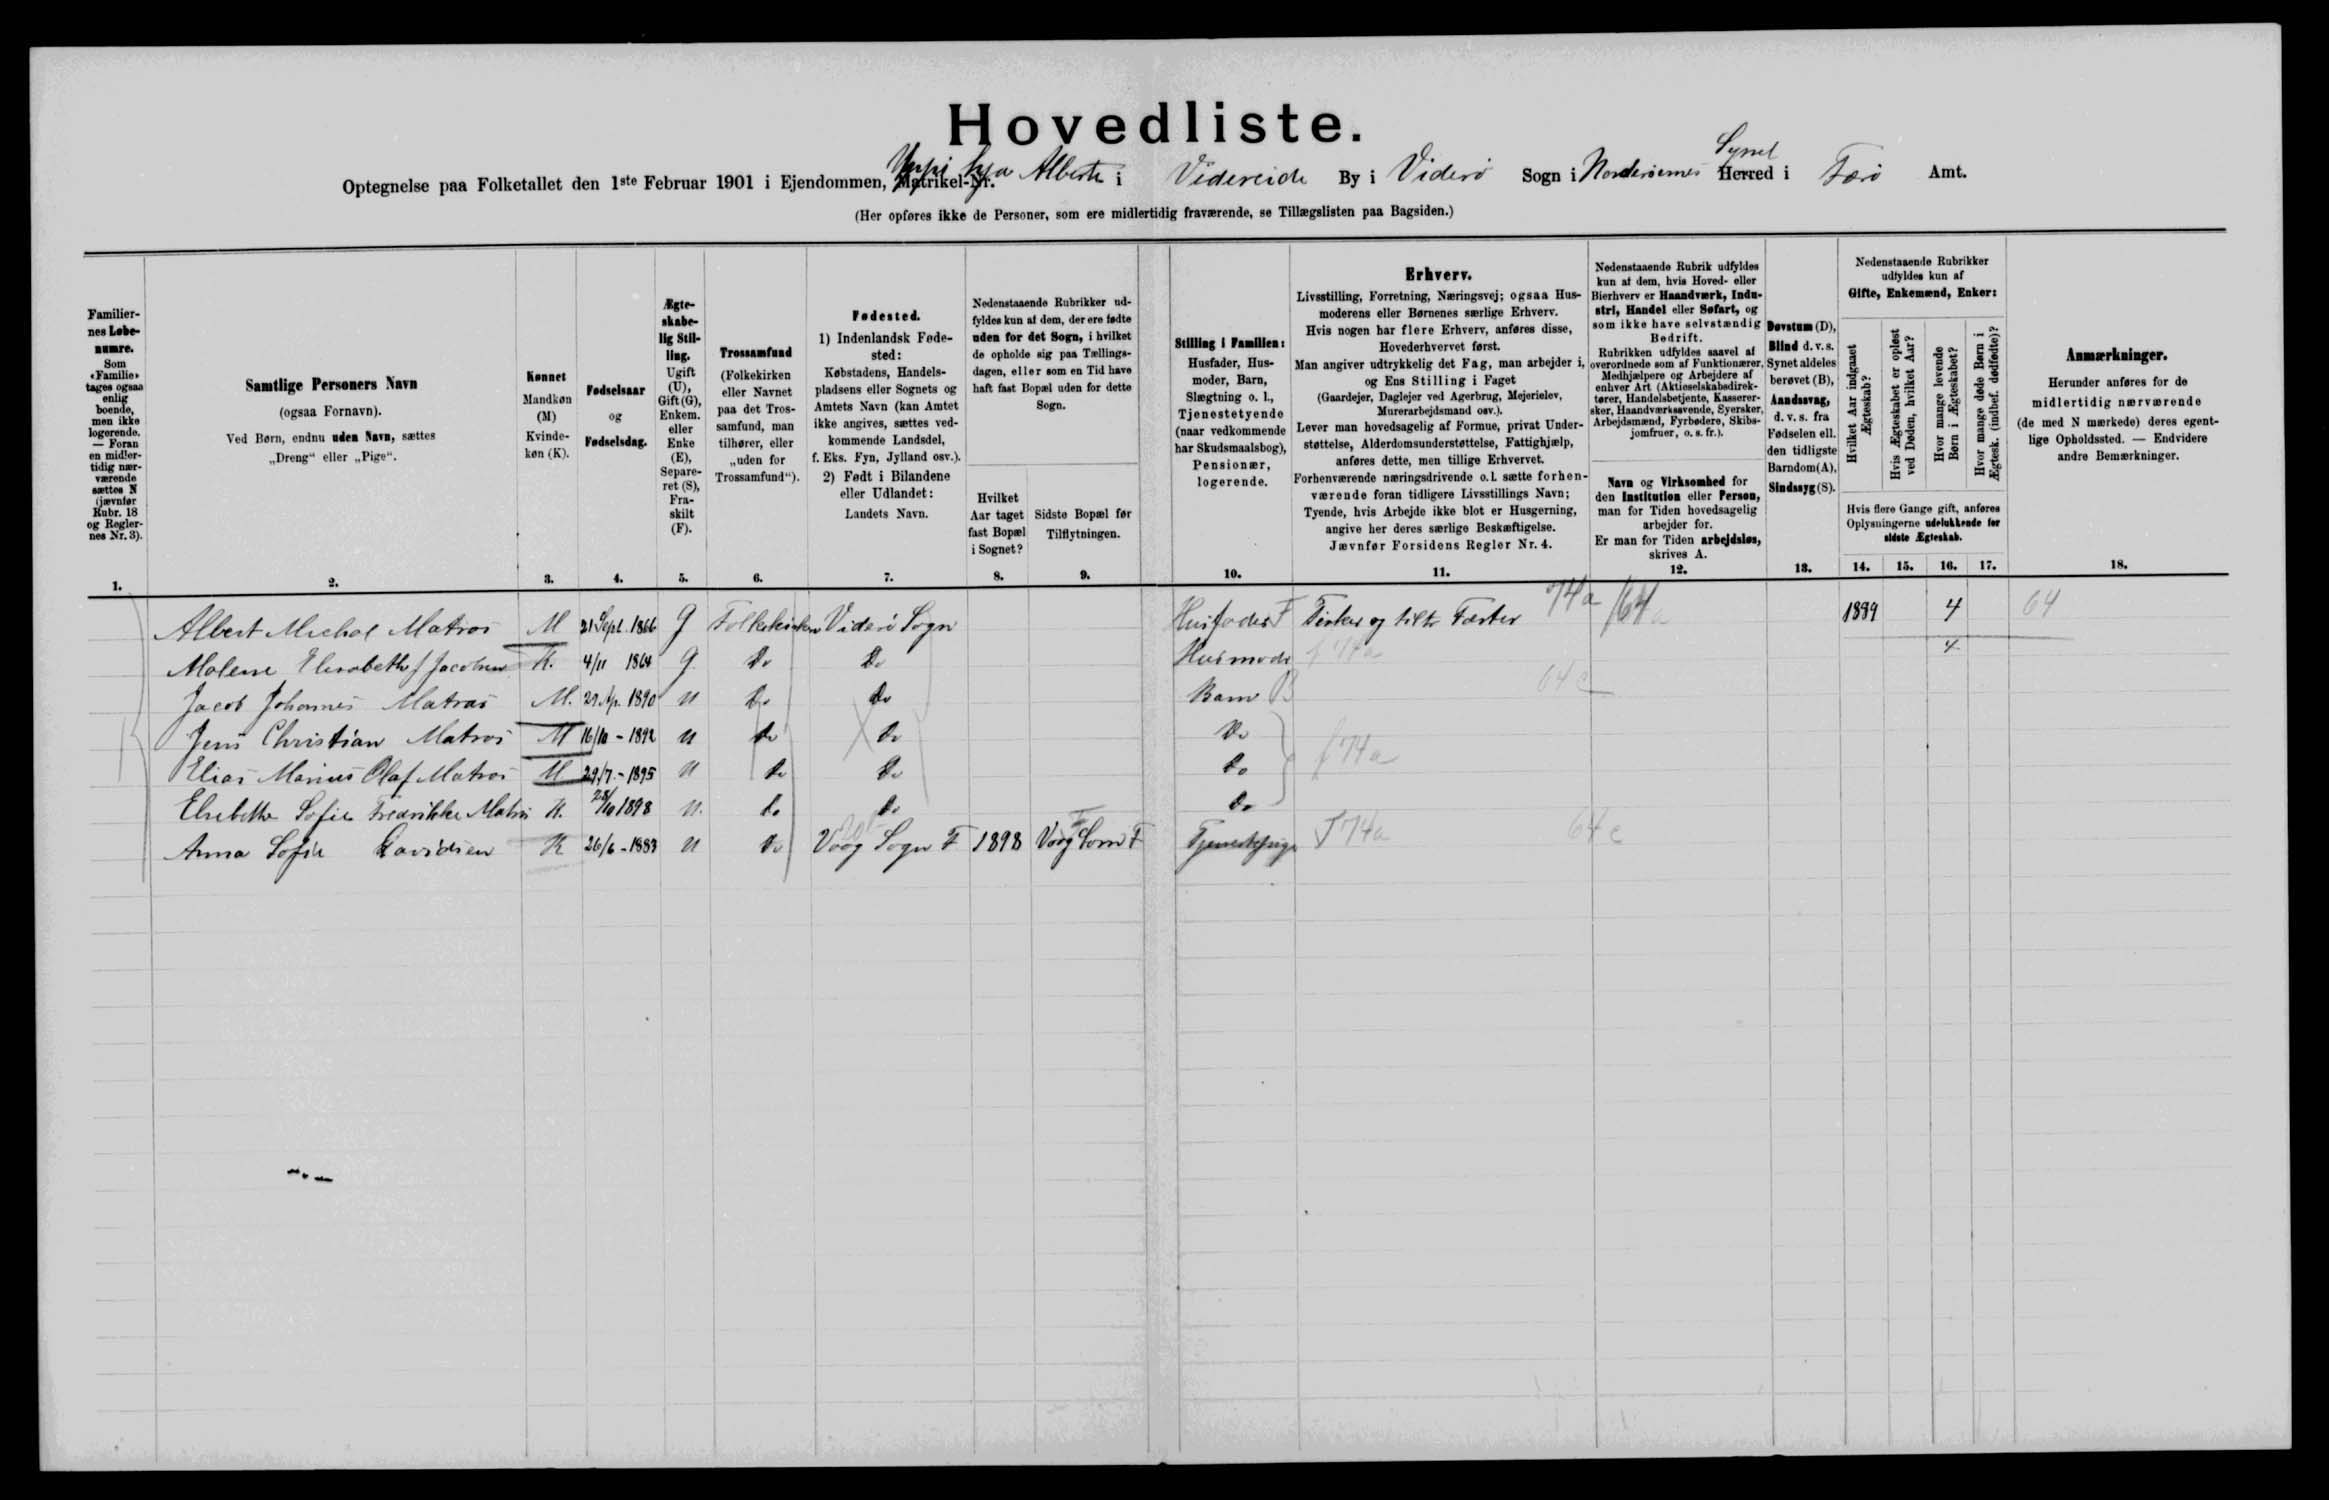 Hovedliste.
Optegnelse paa Folketallet den 1ste Februar 1901 i Ejendommen, Matrikel-Nr. Alberts i Videreide By i Viderø Sogn i Norderøernes Herred Syssel i Færø Amt.
(Her opføres ikke de Personer, som ere midlertidig fraværende, se Tillægslisten paa Bagsiden.)
Familiernes Løbenumre.
Som «Familie» tages ogsaa enlig boende, men ikke logerende. — Foran en midlertidig nærværende sættes N (jævnfør Rubr. 18 og Reglernes Nr. 3).
Samtlige Personers Navn
(ogsaa Fornavn).
Ved Børn, endnu uden Navn, sættes
„Dreng“ eller „Pige“.
Kønnet
Mandkøn (M)
Kvindekøn (K).
Fødselsaar
og
Fødselsdag.
Ægteskabelig Stilling.
Ugift (U), Gift (G), Enkem. eller Enke (E), Separeret (S), Fraskilt (F).
Trossamfund
(Folkekirken eller Navnet paa det Trossamfund, man tilhører, eller „uden for Trossamfund“).
Fødested.
1) Indenlandsk Fødested:
Købstadens, Handelspladsens eller Sognets og Amtets Navn (kan Amtet ikke angives, sættes vedkommende Landsdel, f. Eks. Fyn, Jylland osv.).
2) Født i Bilandene eller Udlandet:
Landets Navn.
Nedenstaaende Rubrikker udfyldes kun af dem, der ere fødte uden for det Sogn, i hvilket de opholde sig paa Tællingsdagen, eller som en Tid have haft fast Bopæl uden for dette Sogn.
Hvilket Aar taget fast Bopæl i Sognet?
Sidste Bopæl før Tilflytningen.
Stilling i Familien:
Husfader, Husmoder, Barn, Slægtning o. l., Tjenestetyende (naar vedkommende har Skudsmaalsbog), Pensionær, logerende.
Erhverv.
Livsstilling, Forretning, Næringsvej; ogsaa Husmoderens eller Børnenes særlige Erhverv.
Hvis nogen har flere Erhverv, anføres disse, Hovederhvervet først.
Man angiver udtrykkelig det Fag, man arbejder i, og Ens Stilling i Faget
(Gaardejer, Daglejer ved Agerbrug, Mejerielev, Murerarbejdsmand osv.).
Lever man hovedsagelig af Formue, privat Understøttelse, Alderdomsunderstøttelse, Fattighjælp, anføres dette, men tillige Erhvervet.
Forhenværende næringsdrivende o. l. sætte forhenværende foran tidligere Livsstillings Navn;
Tyende, hvis Arbejde ikke blot er Husgerning, angive her deres særlige Beskæftigelse.
Jævnfør Forsidens Regler Nr. 4.
Nedenstaaende Rubrik udfyldes kun af dem, hvis Hoved- eller Bierhverv er Haandværk, Industri, Handel eller Søfart, og som ikke have selvstændig Bedrift.
Rubrikken udfyldes saavel af overordnede som af Funktionærer, Medhjælpere og Arbejdere af enhver Art (Aktieselskabsdirektører, Handelsbetjente, Kasserersker, Haandværkssvende, Syersker, Arbejdsmænd, Fyrbødere, Skibsjomfruer, o. s. fr.).
Navn og Virksomhed for den Institution eller Person, man for Tiden hovedsagelig arbejder for.
Er man for Tiden arbejdsløs, skrives A.
Døvstum (D), Blind d. v. s. Synet aldeles berøvet (B), Aandssvag, d. v. s. fra Fødselen ell. den tidligste Barndom (A), Sindssyg (S).
Nedenstaaende Rubrikker udfyldes kun af
Gifte, Enkemænd, Enker:
Hvilket Aar indgaaet Ægteskab?
Hvis Ægteskabet er opløst ved Døden, hvilket Aar?
Hvor mange levende Børn i Ægteskabet?
Hvor mange døde Børn i Ægtesk. (indbef. dødfødte)?
Hvis flere Gange gift, anføres Oplysningerne udelukkende for sidste Ægteskab.
Anmærkninger.
Herunder anføres for de midlertidig nærværende (de med N mærkede) deres egentlige Opholdssted. — Endvidere andre Bemærkninger.
1. 2. 3. 4. 5. 6. 7. 8. 9. 10. 11. 12. 13. 14. 15. 16. 17. 18.
Albert Michal Matras M 21 Sept. 1866 G Folkekirken Viderø Sogn Husfader F Fisker og Fæster 74a 64a 1889 4 64
Malene Elisabeth f. Jacobsen K. 4/11 1864 G Do Do Husmoder f 74a 4
Jacob Johannes Matras M. 29 Ap. 1890 U Do Do Barn B 64c
Jens Christian Matras M 16/10 - 1892 U Do Do Do
Elias Marius Olaf Matras M 29/7 - 1895 U Do Do Do f 74a
Elsebeth Sofie Fredrikke Matras K. 28/10 1898 U. Do Do Do
Anna Sofie Davidsen K 26/6 - 1883 U Do Vaag Sogn F 1898 Vaag Sogn F Tjenestepige T 74a 64c